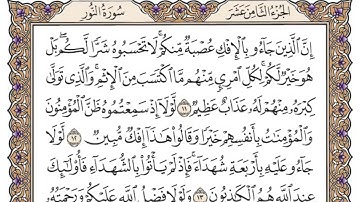 الجزء الثامن عشر سورة النور
إِنَّ الَّذِينَ جَاءُو بِالْإِفْكِ عُصْبَةٌ مِّنكُمْ لَا تَحْسَبُوهُ شَرًّا لَّكُم بَلْ
هُوَ خَيْرٌ لَّكُمْ لِكُلِّ امْرِئٍ مِّنْهُم مَّا اكْتَسَبَ مِنَ الْإِثْمِ وَالَّذِي تَوَلَّىٰ
كِبْرَهُ مِنْهُمْ لَهُ عَذَابٌ عَظِيمٌ ١١ لَّوْلَا إِذْ سَمِعْتُمُوهُ ظَنَّ الْمُؤْمِنُونَ
وَالْمُؤْمِنَاتُ بِأَنفُسِهِمْ خَيْرًا وَقَالُوا هَٰذَا إِفْكٌ مُّبِينٌ ١٢ لَّوْلَا
جَاءُو عَلَيْهِ بِأَرْبَعَةِ شُهَدَاءَ فَإِذْ لَمْ يَأْتُوا بِالشُّهَدَاءِ فَأُولَٰئِكَ
عِندَ اللَّهِ هُمُ الْكَاذِبُونَ ١٣ وَلَوْلَا فَضْلُ اللَّهِ عَلَيْكُمْ وَرَحْمَتُهُ